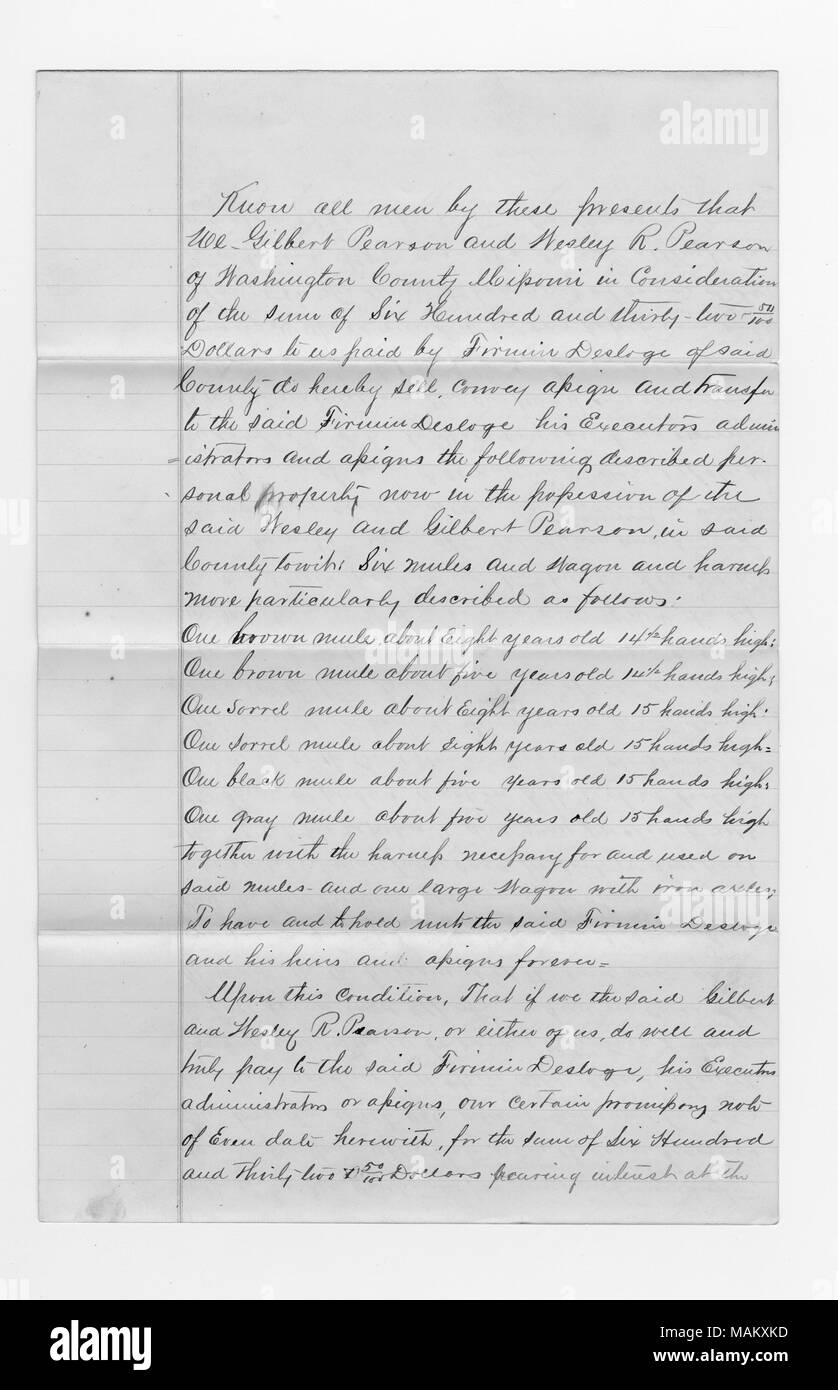 Know all men by these presents that
We Gilbert Pearson and Wesley R. Pearson
of Washington County Missouri in Consideration
of the sum of Six Hundred and thirty-two 50/100
Dollars to us paid by Firmin Desloge of said
County do hereby sell, convey assign and transfer
to the said Firmin Desloge his Executors admin
=istrators and assigns the following described per-
sonal property now in the possession of the
said Wesley and Gilbert Pearson, in said
County towit: Six mules and Wagon and harness
more particularly described as follows:
One brown mule about Eight years old 14 1/2 hands high;
One brown mule about five years old 14 1/2 hands high;
One Sorrel mule about Eight years old 15 hands high:
One sorrel mule about Eight years old 15 hands high=
One black mule about five years old 15 hands high;
One gray mule about five years old 15 hands high
together with the harness necessary for and used on
said mules- and one large Wagon with iron axles;
To have and to hold unto the said Firmin Desloge
and his heirs and assigns forever=
Upon this condition, That if we the said Gilbert
and Wesley R. Pearson, or either of us, do well and
truly pay to the said Firmin Desloge, his Executors
administrators or assigns, our certain promissory note
of Even date herewith, for the sum of Six Hundred
and thirty two & 50/100 Dollars bearing interest at the
alamy
alamy
a
a
a
a
alamy
Image ID: MAKXKD
www.alamy.com